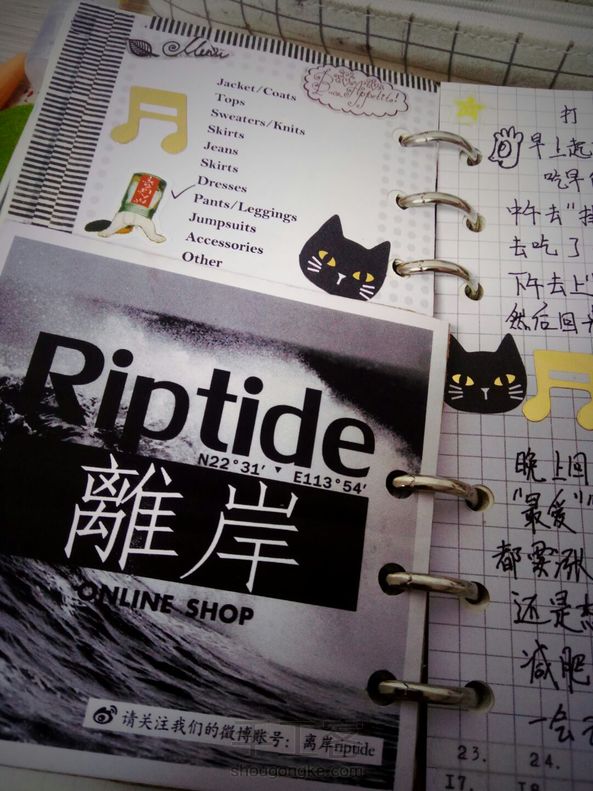 Menu
Bon Appetito!
Jacket/Coats
Tops
Sweaters/Knits
Skirts
Jeans
Skirts
Dresses
Pants/Leggings
Jumpsuits
Accessories
Other
Riptide
N22°31' ▼ E113°54'
離岸
ONLINE SHOP
请关注我们的微博账号：离岸riptide
shougongke.com
打
早上起
吃早
中午去"
去吃了
下午去上
然后回
晚上回
"最爱"
都要涨
还是
减肥
一会
23. 24.
17. 18